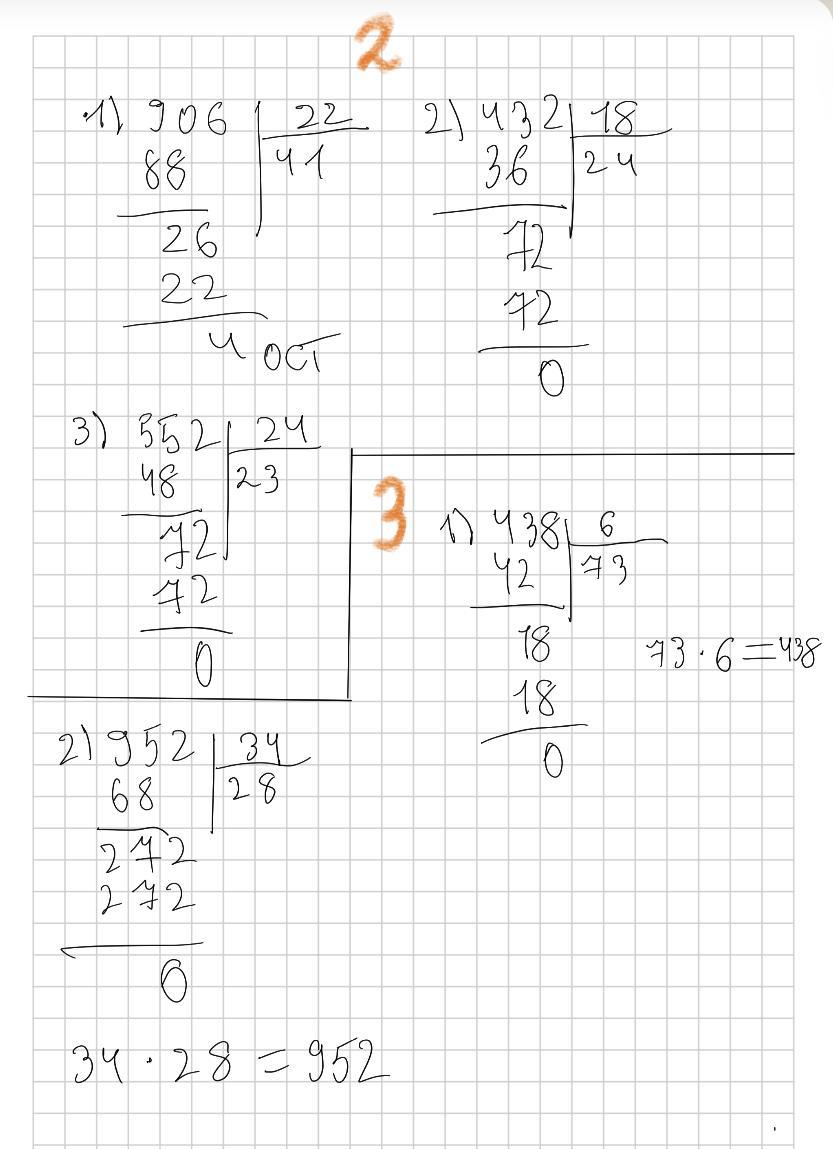 2
1) 906 22
88 41
26
22
4 ОСТ
2) 432 18
36 24
72
72
0
3) 552 24
48 23
72
72
0
3
1) 438 6
42 73
18
18
0
73 · 6 = 438
2) 952 34
68 28
272
272
0
34 · 28 = 952